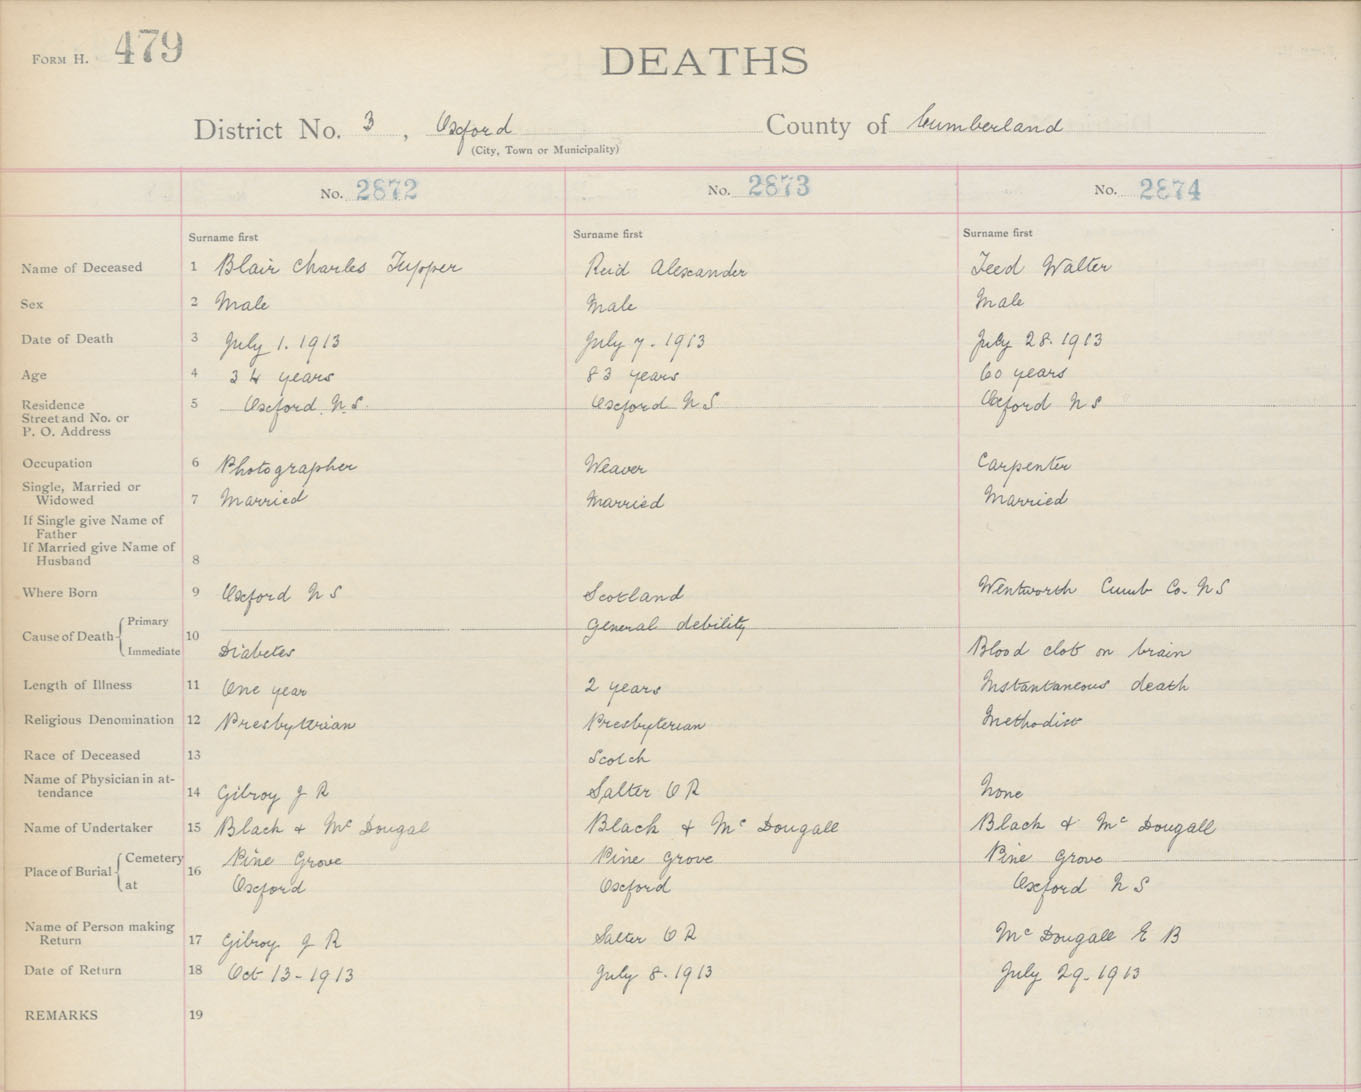 FORM H. 479
DEATHS
District No. 3, Oxford County of Cumberland
(City, Town or Municipality)
No. 2872 No. 2873 No. 2874
Surname first Surname first Surname first
Name of Deceased 1 Blair Charles Tupper Reid Alexander Teed Walter
Sex 2 Male Male Male
Date of Death 3 July 1. 1913 July 7. 1913 July 28. 1913
Age 4 34 years 83 years 60 years
Residence 5 Oxford N.S. Oxford N S Oxford N S
Street and No. or
P. O. Address
Occupation 6 Photographer Weaver Carpenter
Single, Married or
Widowed 7 Married Married Married
If Single give Name of
Father
If Married give Name of
Husband 8
Where Born 9 Oxford N S Scotland Wentworth Cumb Co. N S
Cause of Death Primary 10 General debility
Immediate Diabetes Blood clot on brain
Length of Illness 11 One year 2 years Instantaneous death
Religious Denomination 12 Presbyterian Presbyterian Methodist
Race of Deceased 13 Scotch
Name of Physician in at-
tendance 14 Gilroy J R Salter O R None
Name of Undertaker 15 Black & McDougal Black & McDougall Black & McDougall
Place of Burial Cemetery 16 Pine Grove Pine Grove Pine Grove
at Oxford Oxford Oxford N S
Name of Person making
Return 17 Gilroy J R Salter O R McDougall E B
Date of Return 18 Oct 13-1913 July 8. 1913 July 29. 1913
REMARKS 19